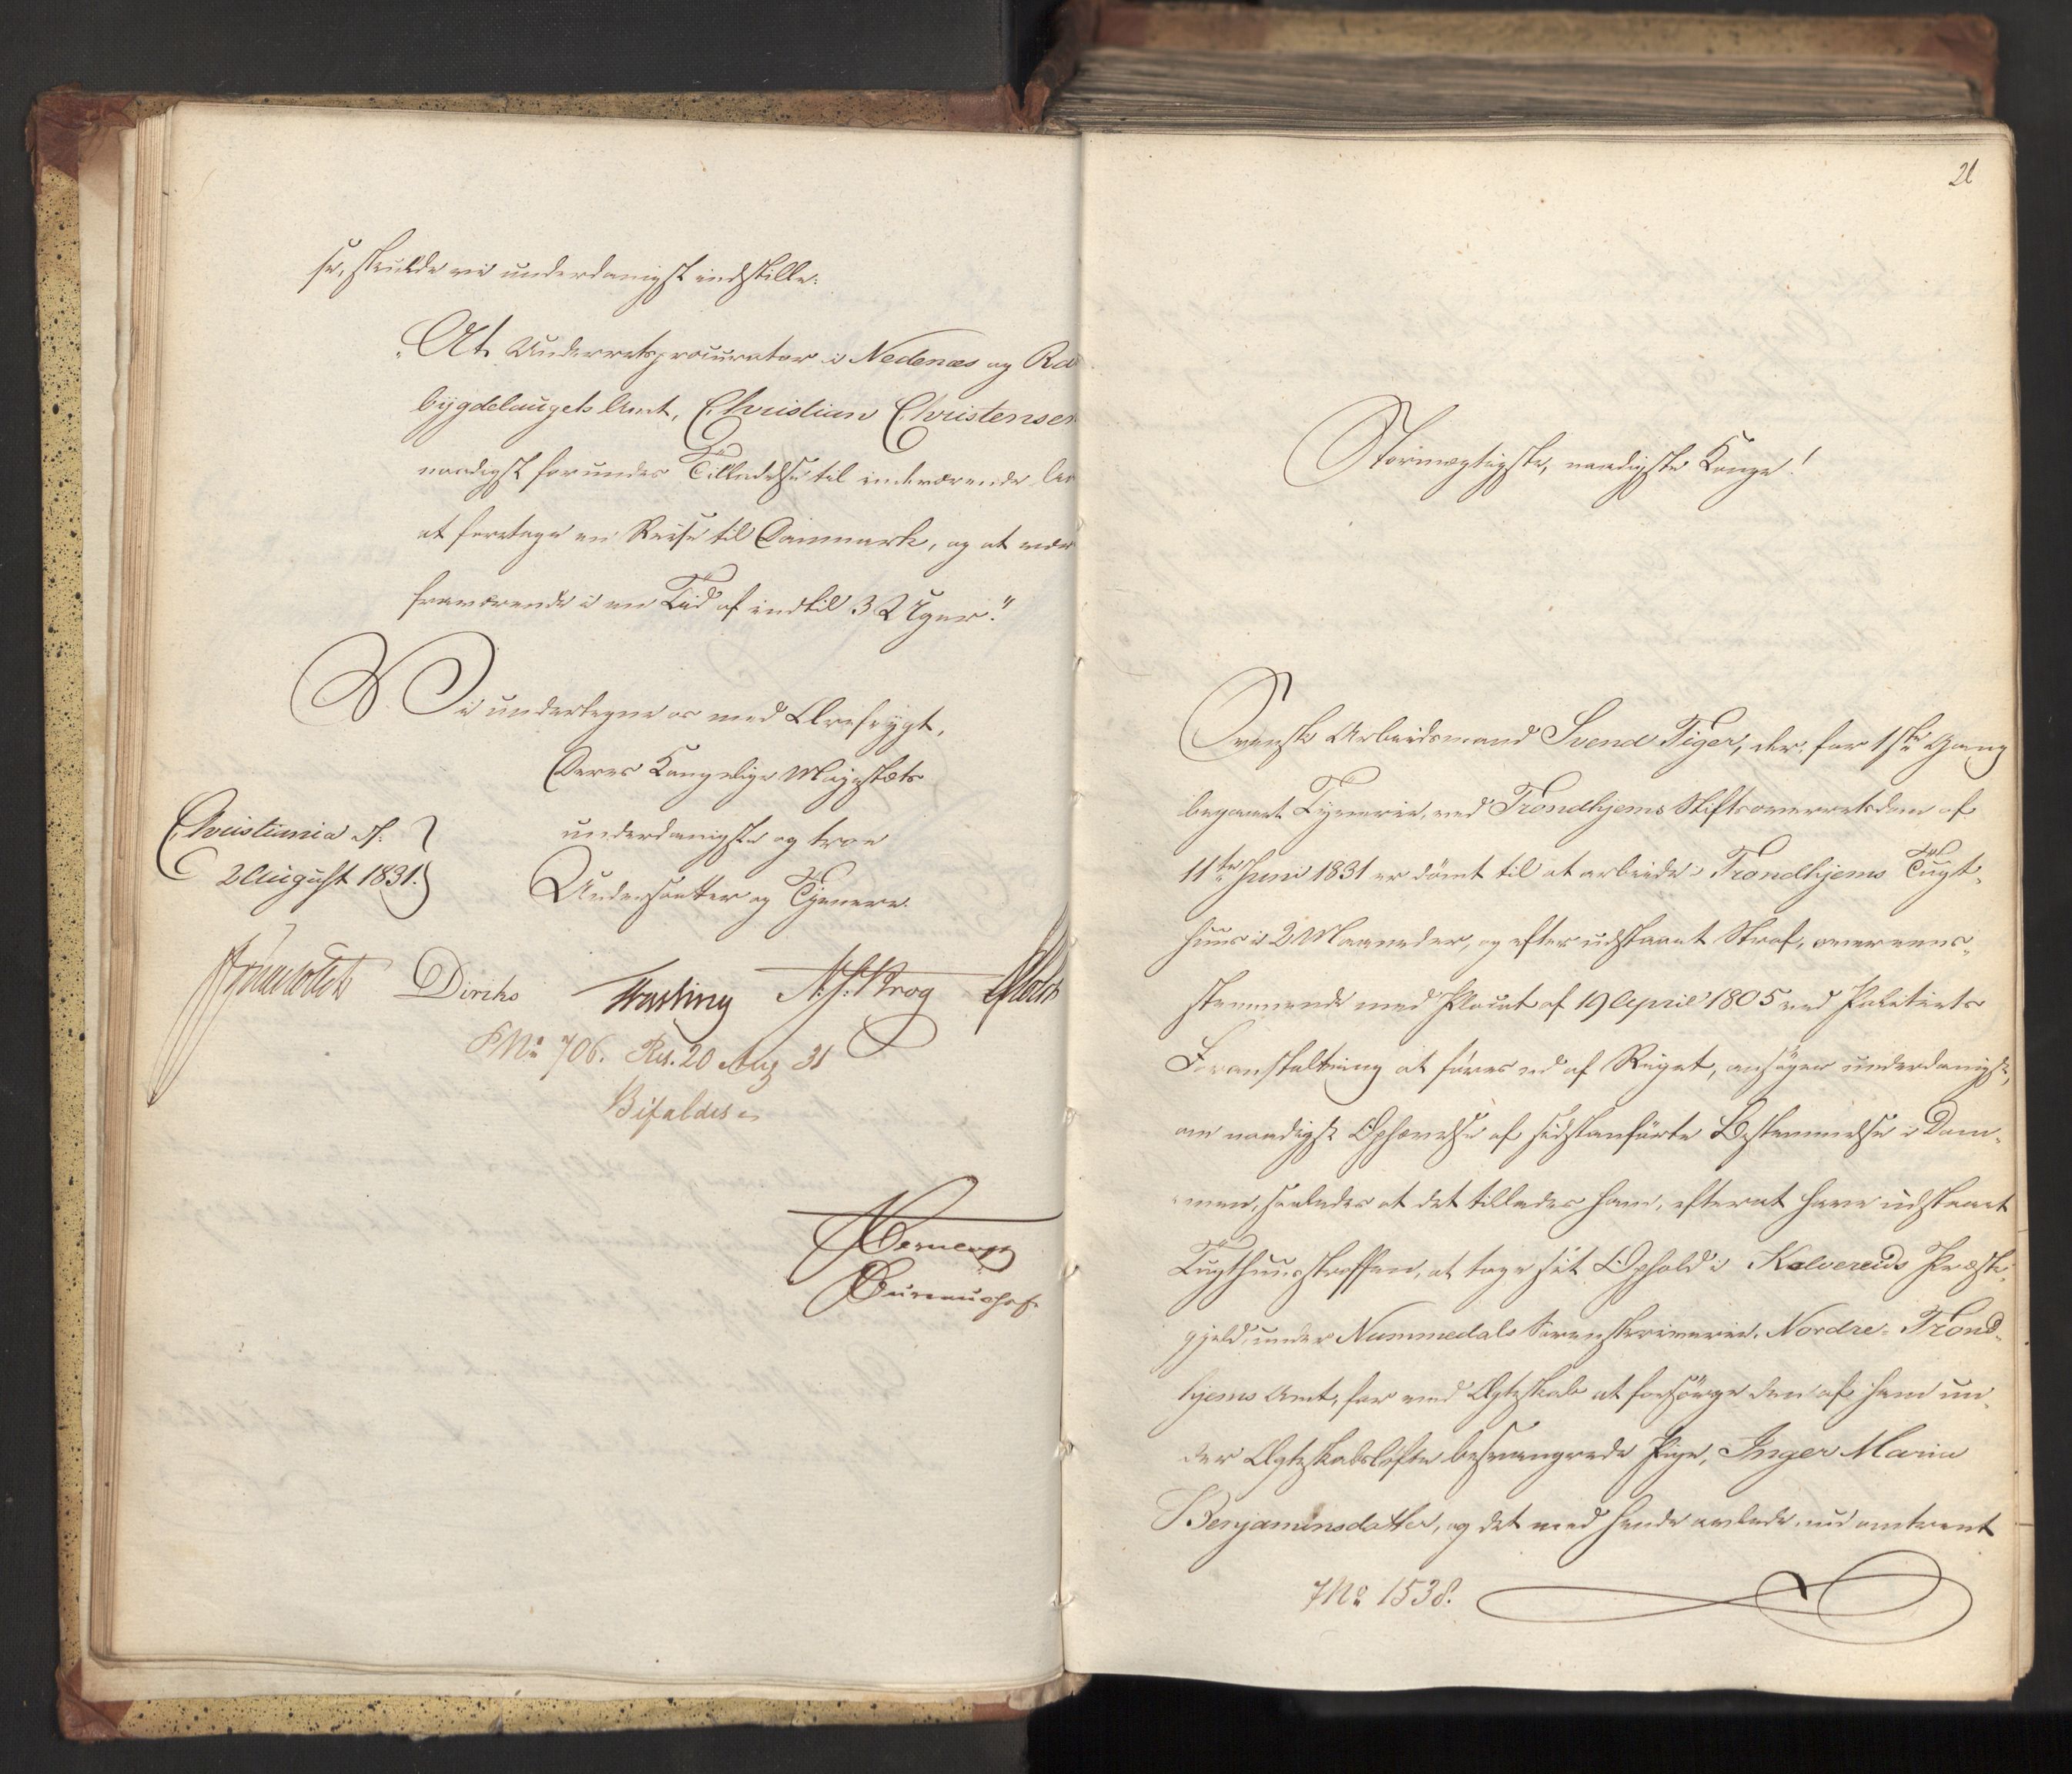 se, skulde vi underdanigst indstille:
"At Underretsprocurator i Nedenæs og Raa
bygdelaugets Amt, Christian Christensen
naadigst forundes Tilladelse til indeværende Aar
at foretage en Reise til Danmark, og at være
fraværende i en Tid af indtil 3 Uger."
Vi undertegne os med Ærefrygt,
Deres Kongelige Majestæts
underdanigste og troe
Undersaatter og Tjenere.
Christiania d.
2 August 1831.
Diriks Fasting A. S. Krog Holst
No 706. Res. 20 Aug 31
Bifaldes
Bureauchef
21
Stormægtigste, naadigste Konge!
Svensk Arbeidsmand Svend Tiger, der, for 1ste Gang
begaaet Tyverie, ved Trondhjems Stiftsoverretsdom af
11te Juni 1831 er dömt til at arbeide i Trondhjems Tugt-
huus i 2 Maaneder, og efter udstaaet Straf, overeens-
stemmende med Placat af 19 April 1805 ved Politiets
Foranstaltning at föres ud af Riget, ansöger underdanigst,
om naadigst Ophævelse af sidstanförte Bestemmelse i Dom-
men, saaledes at det tillades ham, efterat have udstaaet
Tugthuusstraffen, at tage sit Ophold i Kolvereids Præste-
gjeld, under Nummedals Sorenskriverie, Nordre-Trond-
hjems Amt, for ved Ægteskab at forsörge den af ham un-
der Ægteskabslöfte besvangrede Pige, Inger Maria
Benjaminsdatter, og det med hende avlede, nu omtrent
No 1538.